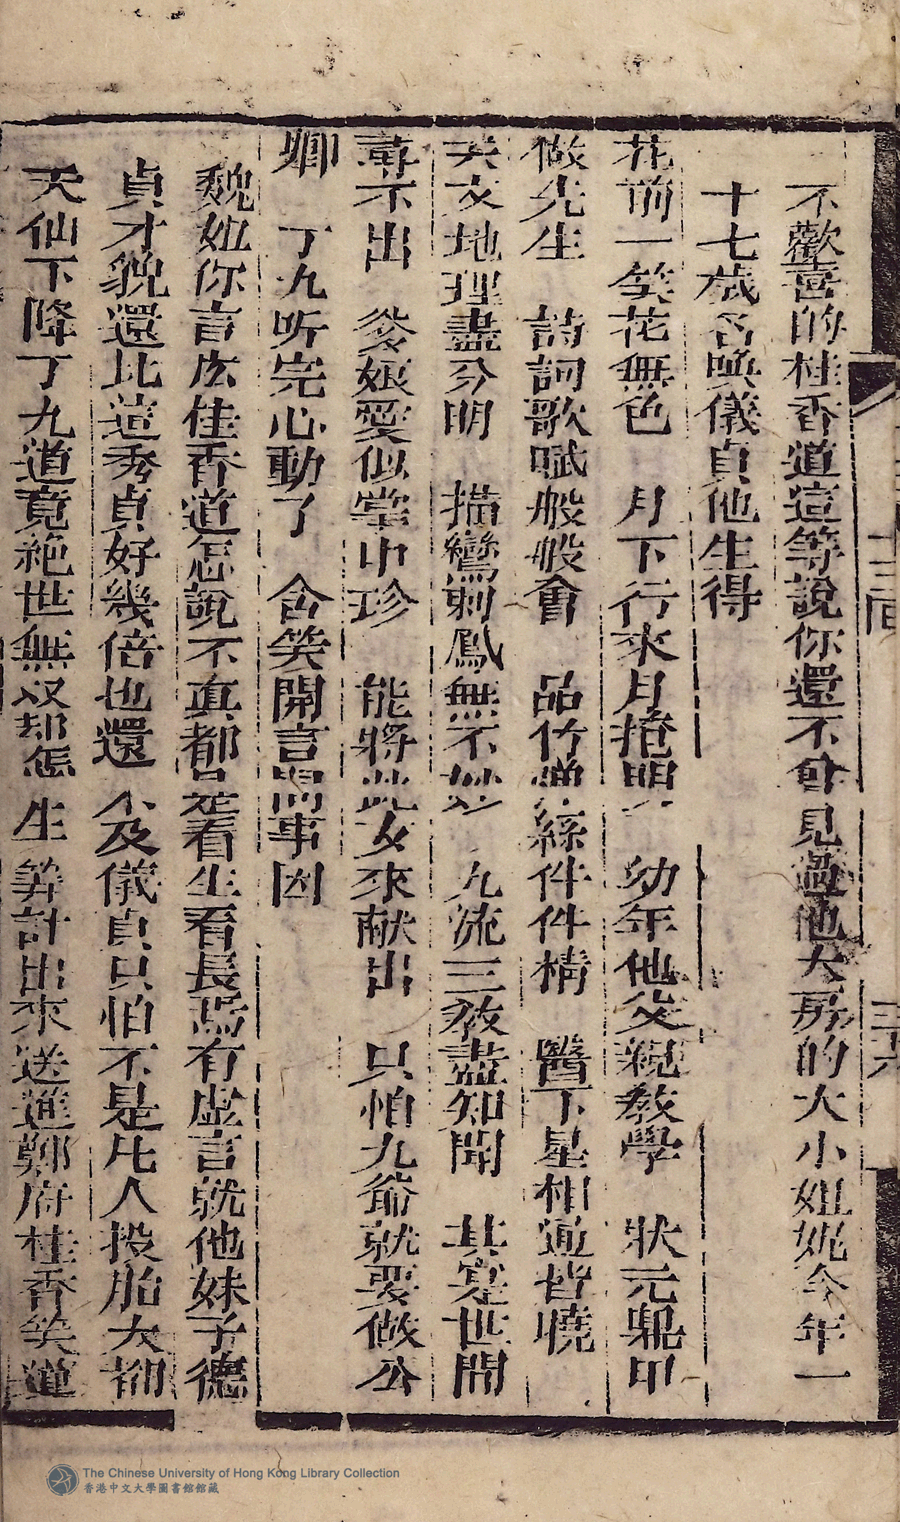 不歡喜的桂香道這等說你還不曾見過他大房的大小姐妮今年一
十七歲名喚儀貞他生得
花前一笑花無色 月下行來月掩明 幼年他父親教學 狀元鼎甲
做先生 詩詞歌賦般般會 品竹彈絲件件精 醫卜星相通皆曉
天文地理盡分明 描鸞刺鳳無不妙 九流三教盡知聞 其寔世間
尋不出 爹娘愛似掌中珍 能將此女來献出 只怕九爺就要做公
卿 丁九听完心動了 含笑開言問事因
魏姐你言庅桂香道怎說不真都是看生看長焉有虛言就他妹子德
貞才貌還比這秀貞好幾倍也還不及儀貞只怕不是凡人投胎大都
天仙下降丁九道竟絕世無双却怎生筭計出來送進鄭府桂香笑道
十三回
三六
The Chinese University of Hong Kong Library Collection
香港中文大學圖書館館藏